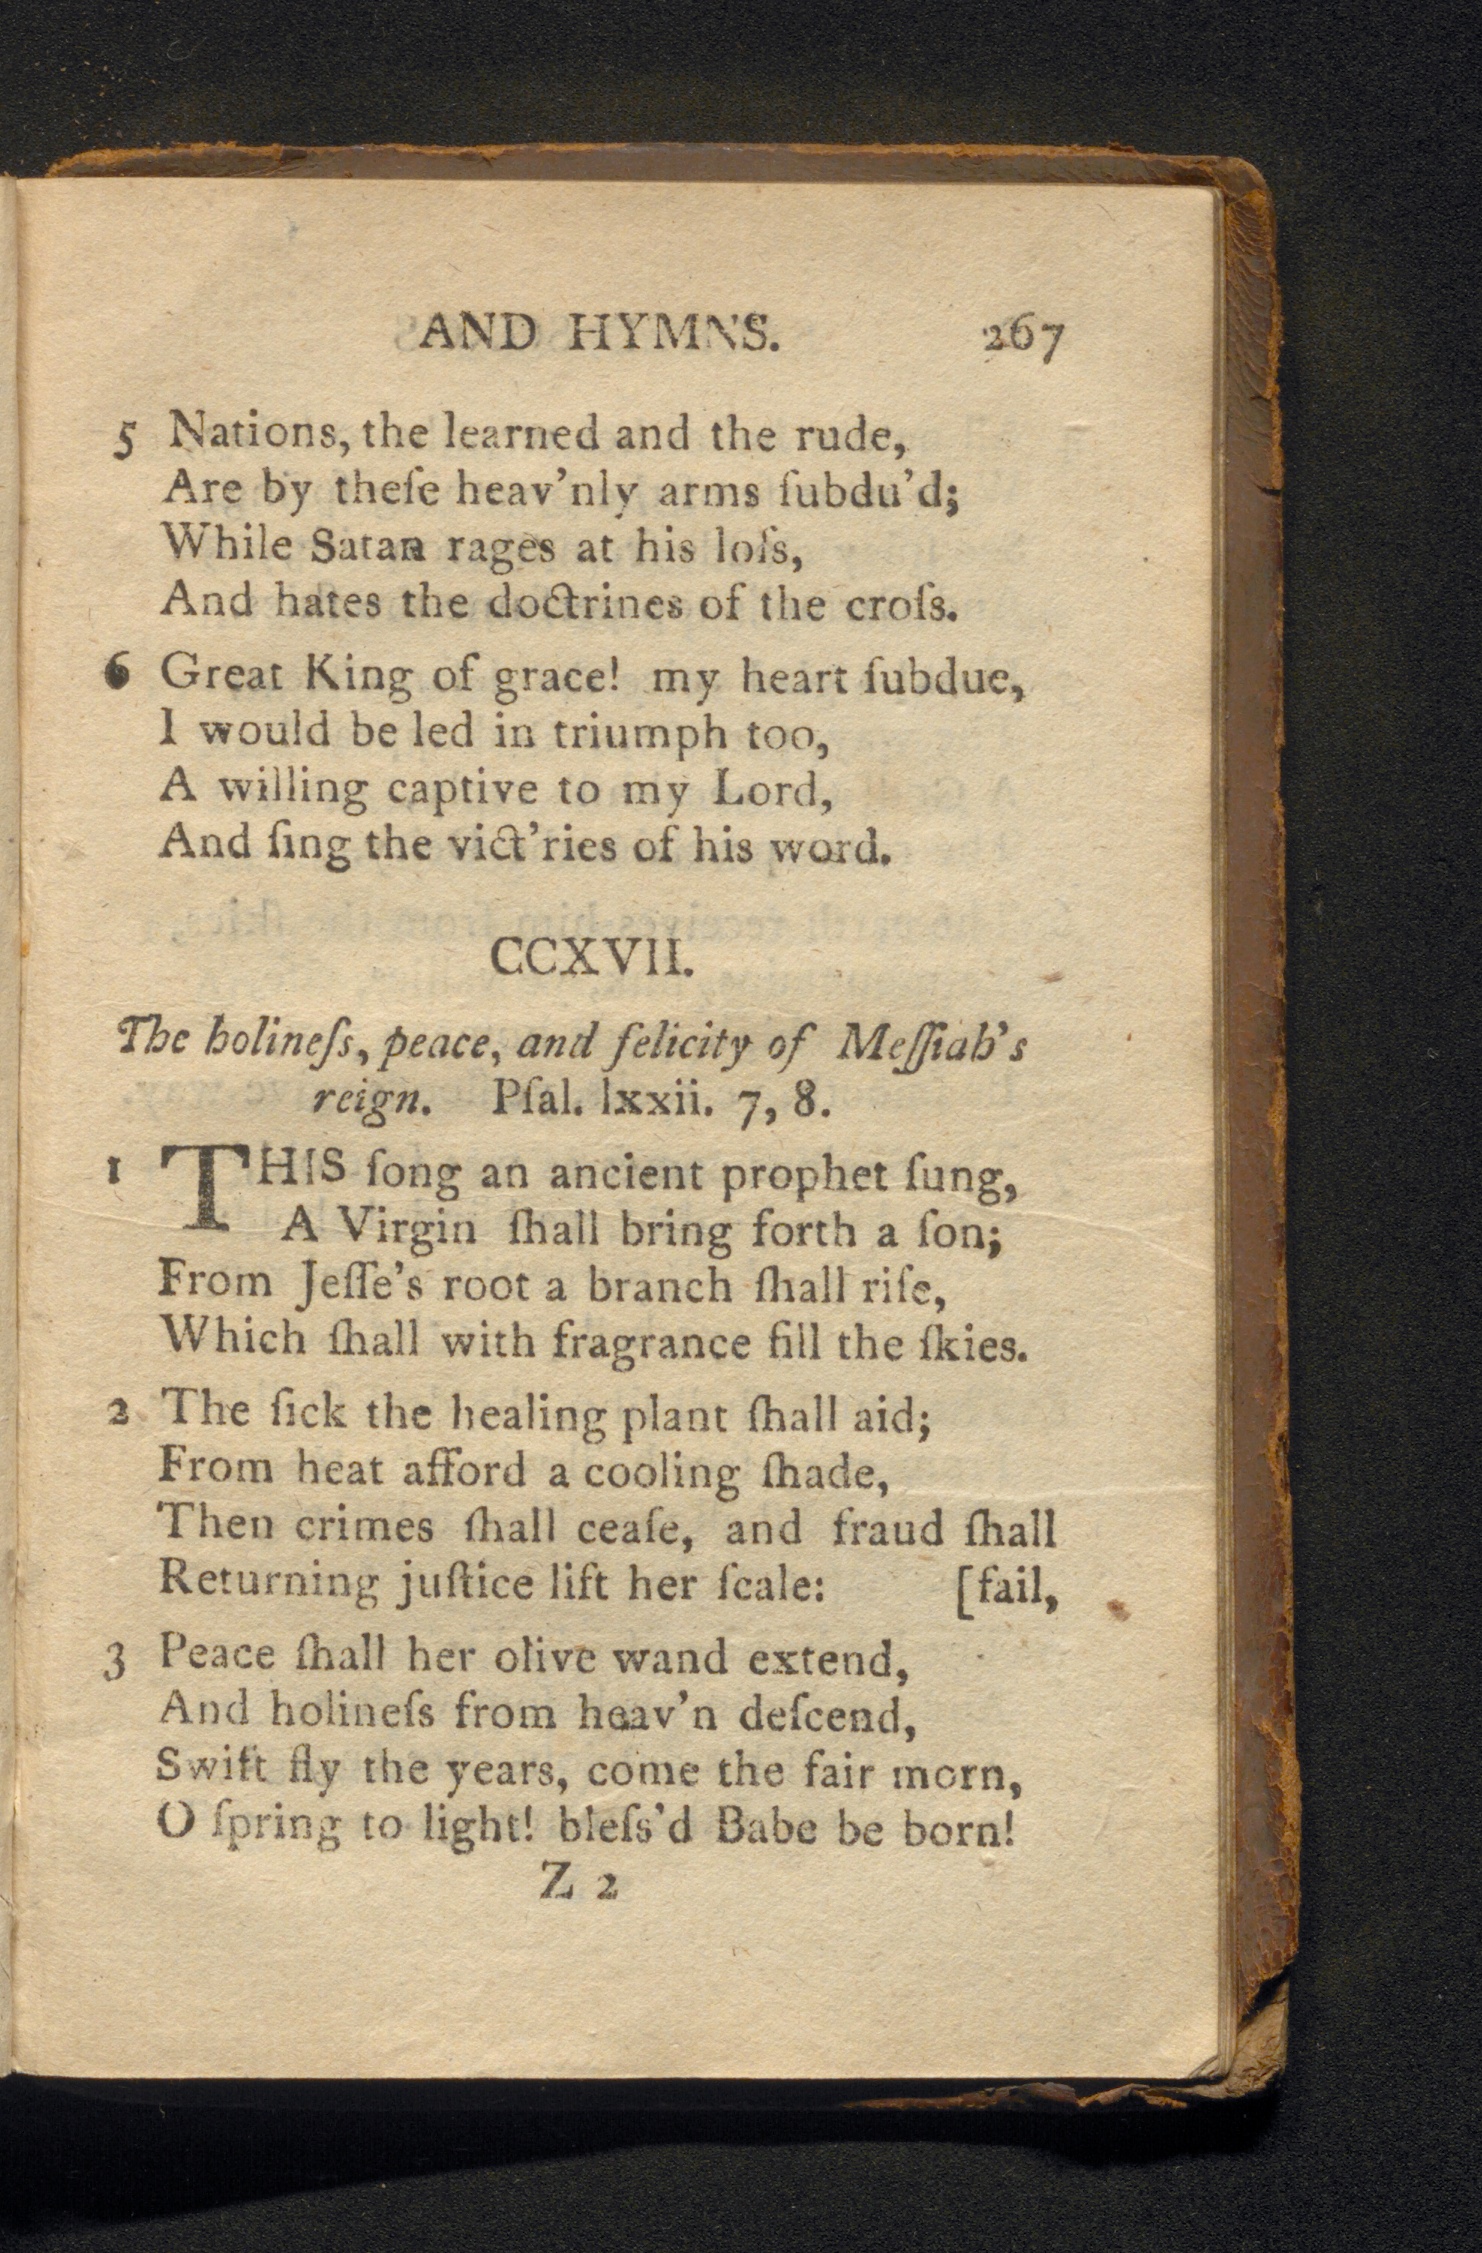 AND HYMNS. 267
5 Nations, the learned and the rude,
Are by theſe heav'nly arms ſubdu'd;
While Satan rages at his loſs,
And hates the doctrines of the croſs.
6 Great King of grace! my heart ſubdue,
I would be led in triumph too,
A willing captive to my Lord,
And ſing the vict'ries of his word.
CCXVII.
The holineſs, peace, and felicity of Meſſiah's
reign. Pſal. lxxii. 7, 8.
1 THIS ſong an ancient prophet ſung,
A Virgin ſhall bring forth a ſon;
From Jeſſe's root a branch ſhall riſe,
Which ſhall with fragrance fill the ſkies.
2 The ſick the healing plant ſhall aid;
From heat afford a cooling ſhade,
Then crimes ſhall ceaſe, and fraud ſhall
Returning juſtice lift her ſcale: [fail,
3 Peace ſhall her olive wand extend,
And holineſs from heav'n deſcend,
Swift fly the years, come the fair morn,
O ſpring to light! bleſs'd Babe be born!
Z 2